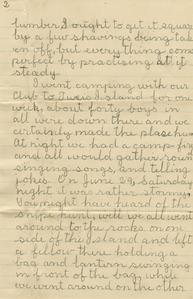 2
lumber I ought to get it square
by a few shavings being tak
en off, but everything come
perfect by practising at it
steady.
I went camping with our
Club to Island for one
week, about forty boys in
all were down there and we
certainly made the place hum
At night we had a camp-fire
and all would gather round
singing songs, and telling
jokes. On June 29, Saturday
night it was rather stormy,
You might have heard of the
snipe hunt, well we all went
around to the rocks on one
side of the Island and left
a fellow there holding a
bag and lantern swinging
in front of the bag, while
we went around on the other